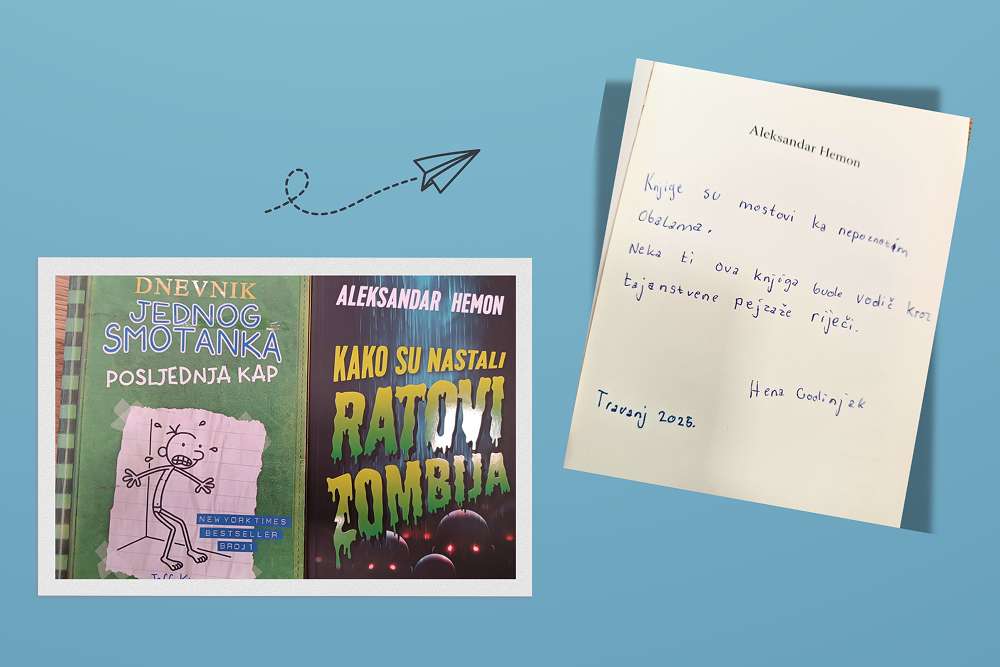 DNEVNIK
JEDNOG
SMOTANKA
POSLJEDNJA KAP
NEW YORK TIMES
BESTSELLER
BROJ 1
ALEKSANDAR HEMON
KAKO SU NASTALI
RATOVI
ZOMBIJA
Aleksandar Hemon
Knjige su mostovi ka nepoznatim
obalama.
Neka ti ova knjiga bude vodič kroz
tajanstvene pejzaže riječi.
Hena Godinjak
Travanj 2025.